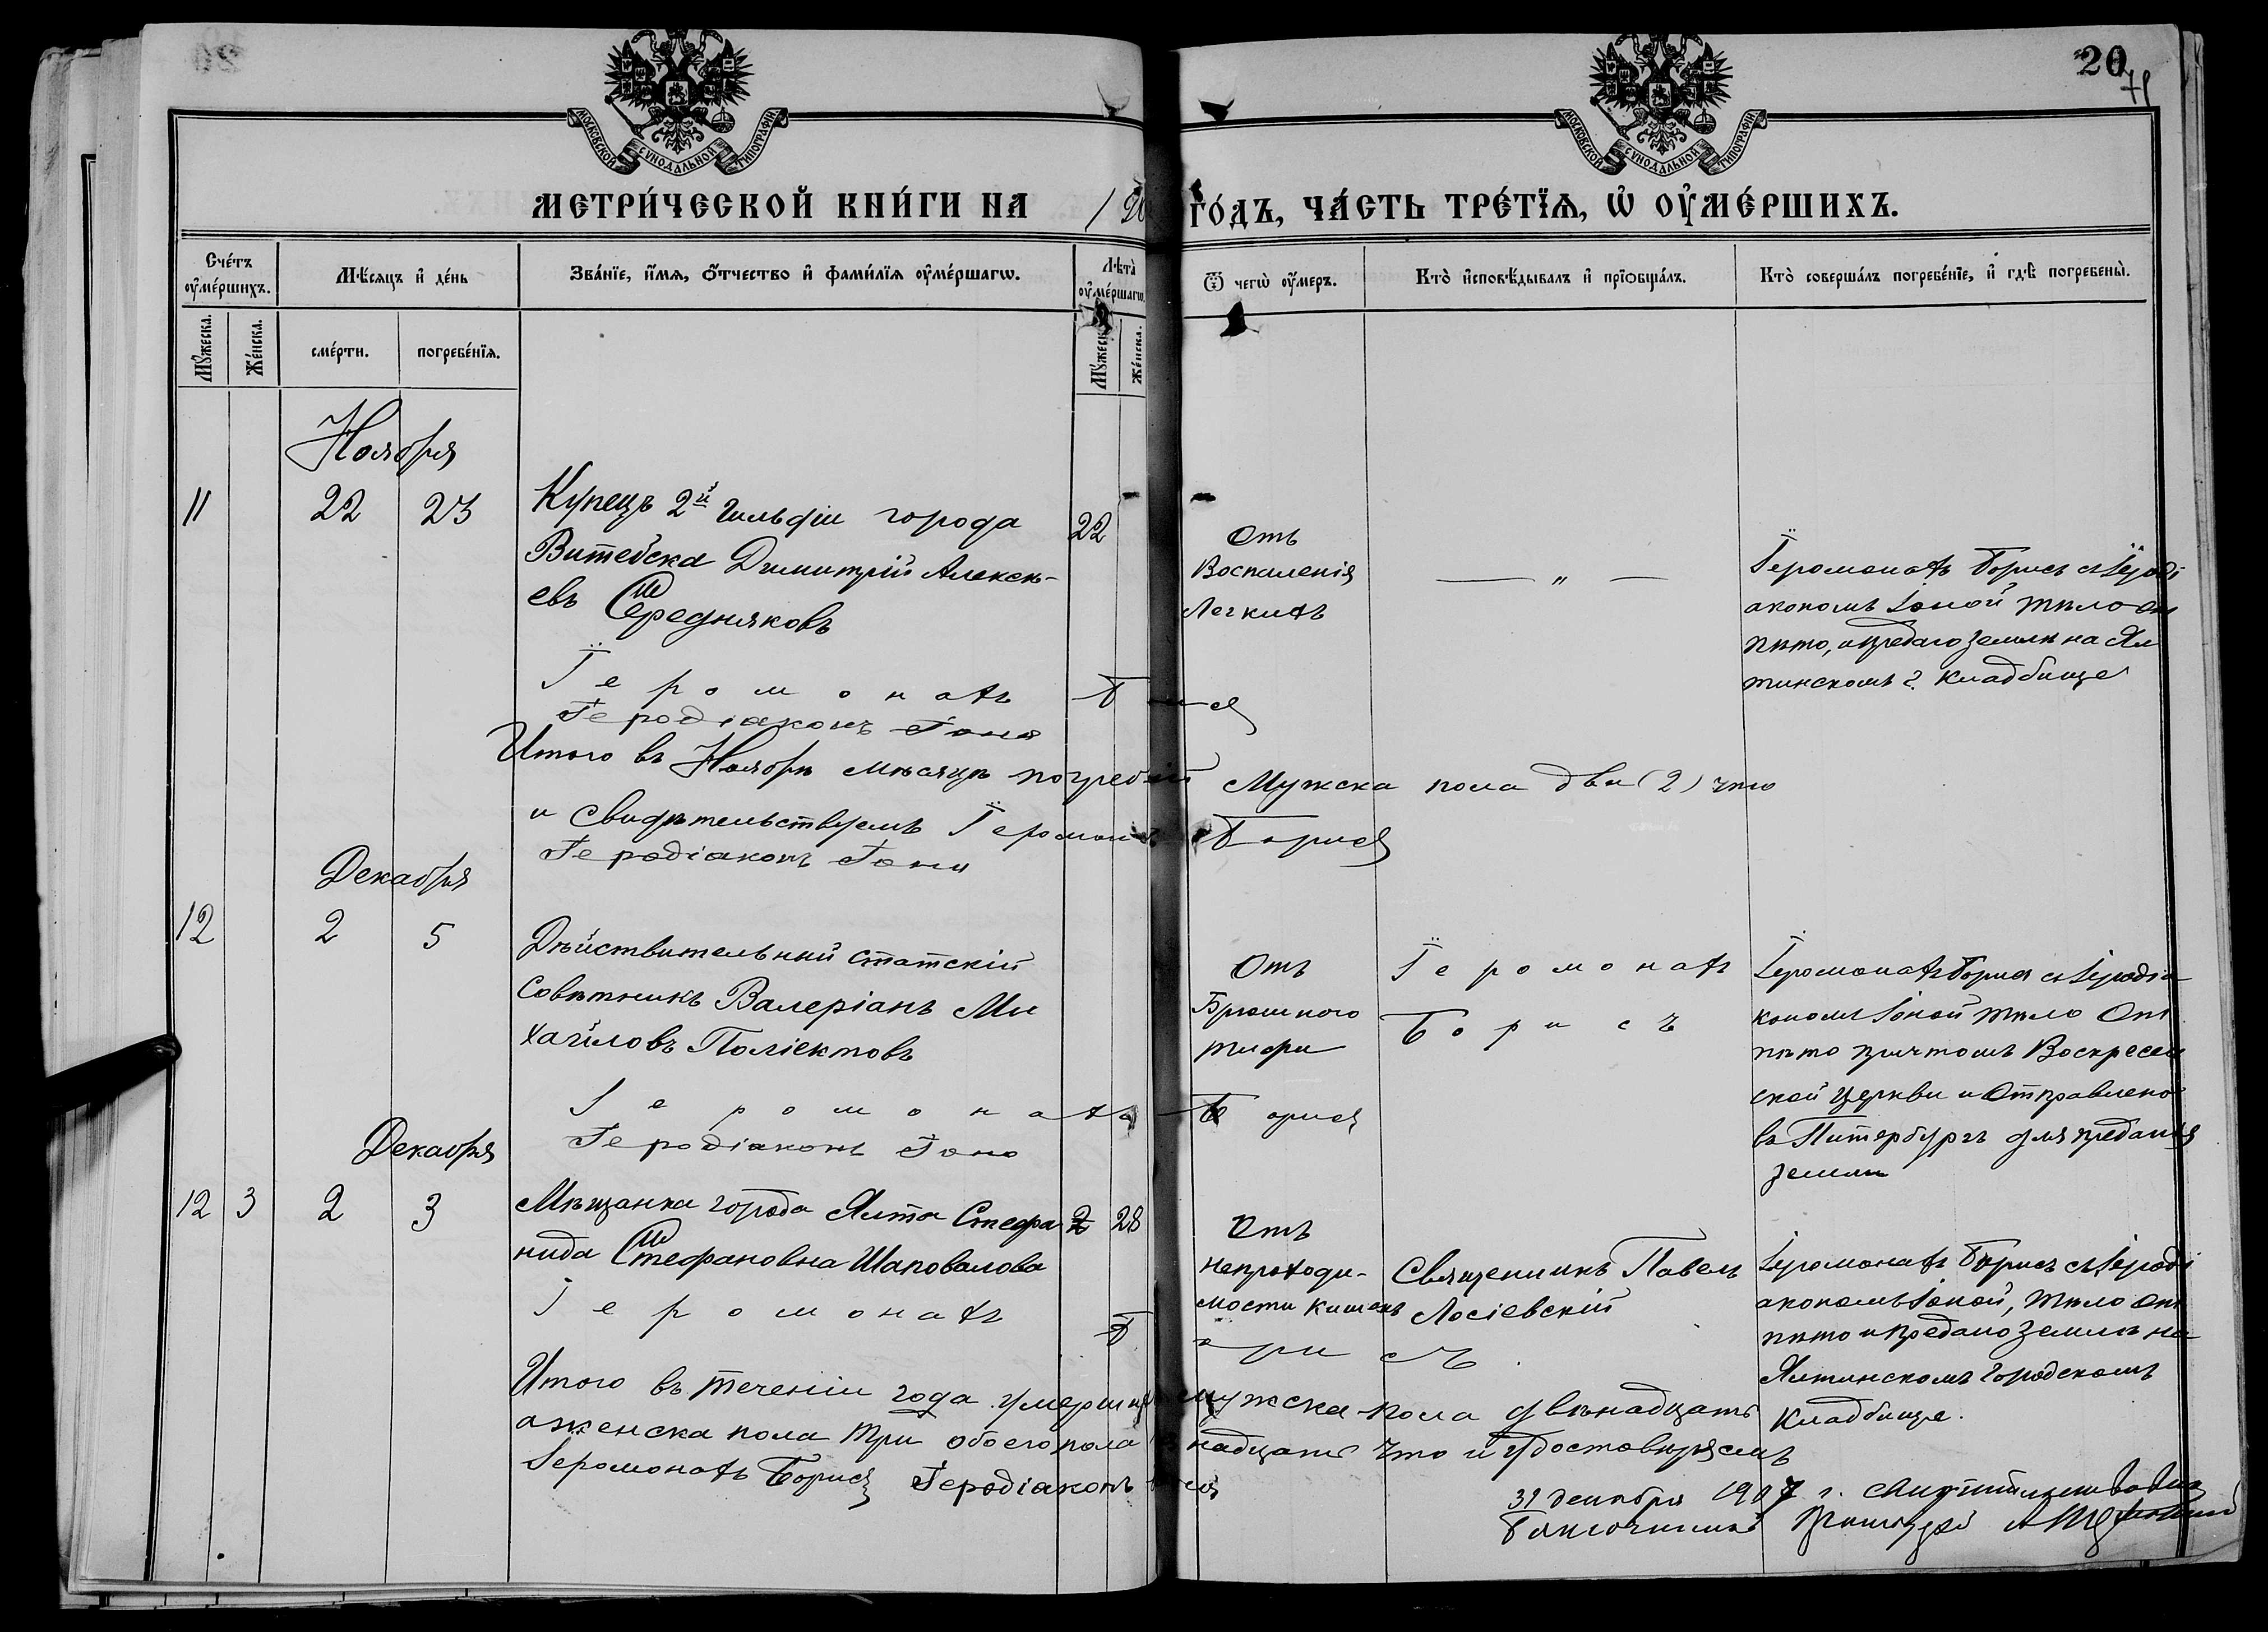 20
71
МОСКОВСКОЙ СУНОДАЛЬНОЙ ТИПОГРАФІИ
МОСКОВСКОЙ СУНОДАЛЬНОЙ ТИПОГРАФІИ
МЕТРИ́ЧЕСКОЙ КНИ́ГИ НА 1 ГО́ДЪ, ЧА́СТЬ ТРЕ́ТЇѦ, Ѡ ОУМЕ́РШИХЪ.
Счéтъ оумéршихъ.
Мꙋжеска.
Жéнска.
Мѣ́сяцъ и дéнь
смéрти.
погребéнїѧ.
Звáнїе, и́мѧ, ѻ́тчество и фамѝлїѧ оумéршагѡ.
Лѣта̀ оумéршагѡ.
Мꙋжеска.
Жéнска.
Ѿ чегѡ̀ оу́меръ.
Кто̀ исповѣ́дывалъ и прїѡбщáлъ.
Кто̀ совершáлъ погребéнїе, и гдѣ̀ погребены̀.
Ноября
11 22 23
Купецъ 2й гильдіи города
Витебска Димитрій Алексѣ-
евъ Середняковъ
22
Отъ
Воспаленія
Легкихъ
— „ —
Іеромонахъ Борисъ съ Іероді
акономъ Іоной тѣло от
пѣто, и предано землѣ на Ял
тинскомъ г. кладбище
Іеромонахъ Борисъ
Іеродіаконъ Іона
Итого въ Ноябрѣ мѣсяцѣ погребен Мужска пола два (2) что
и свидѣтельствуемъ Іеромонахъ Борисъ
Іеродіаконъ Іона
Декабря
12 2 5
Дѣйствительный статскій
Совѣтникъ Валеріанъ Ми
хайловъ Поліектовъ
Отъ
Брюшного
тифа
Іеромонахъ
Борисъ
Іеромонахъ Борисъ съ Іеродіа
кономъ Іоной тѣло От
пѣто причтомъ Воскресен
ской церкви и Отправлено
въ Питербургъ для преданія
землѣ
Іеромонахъ Борисъ
Іеродіаконъ Іона
Декабря
12 3 2 3
Мѣщанка города Ялты Стефа
нида Стефановна Шаповалова
28
Отъ
непроходи-
мости кишекъ
Священникъ Павелъ
Лосіевскій
Іеромонахъ Борисъ съ Іероді
акономъ Іоной, тѣло от
пѣто и предано землѣ на
Ялтинскомъ Городскомъ
кладбище.
Іеромонахъ Борисъ
Итого въ теченіи года умерших мужска пола двѣнадцать
а женска пола три обоего пола надцать что и удостовѣряемъ
Іеромонахъ Борисъ Іеродіаконъ
31 декабря 1907 г.
Благочинный